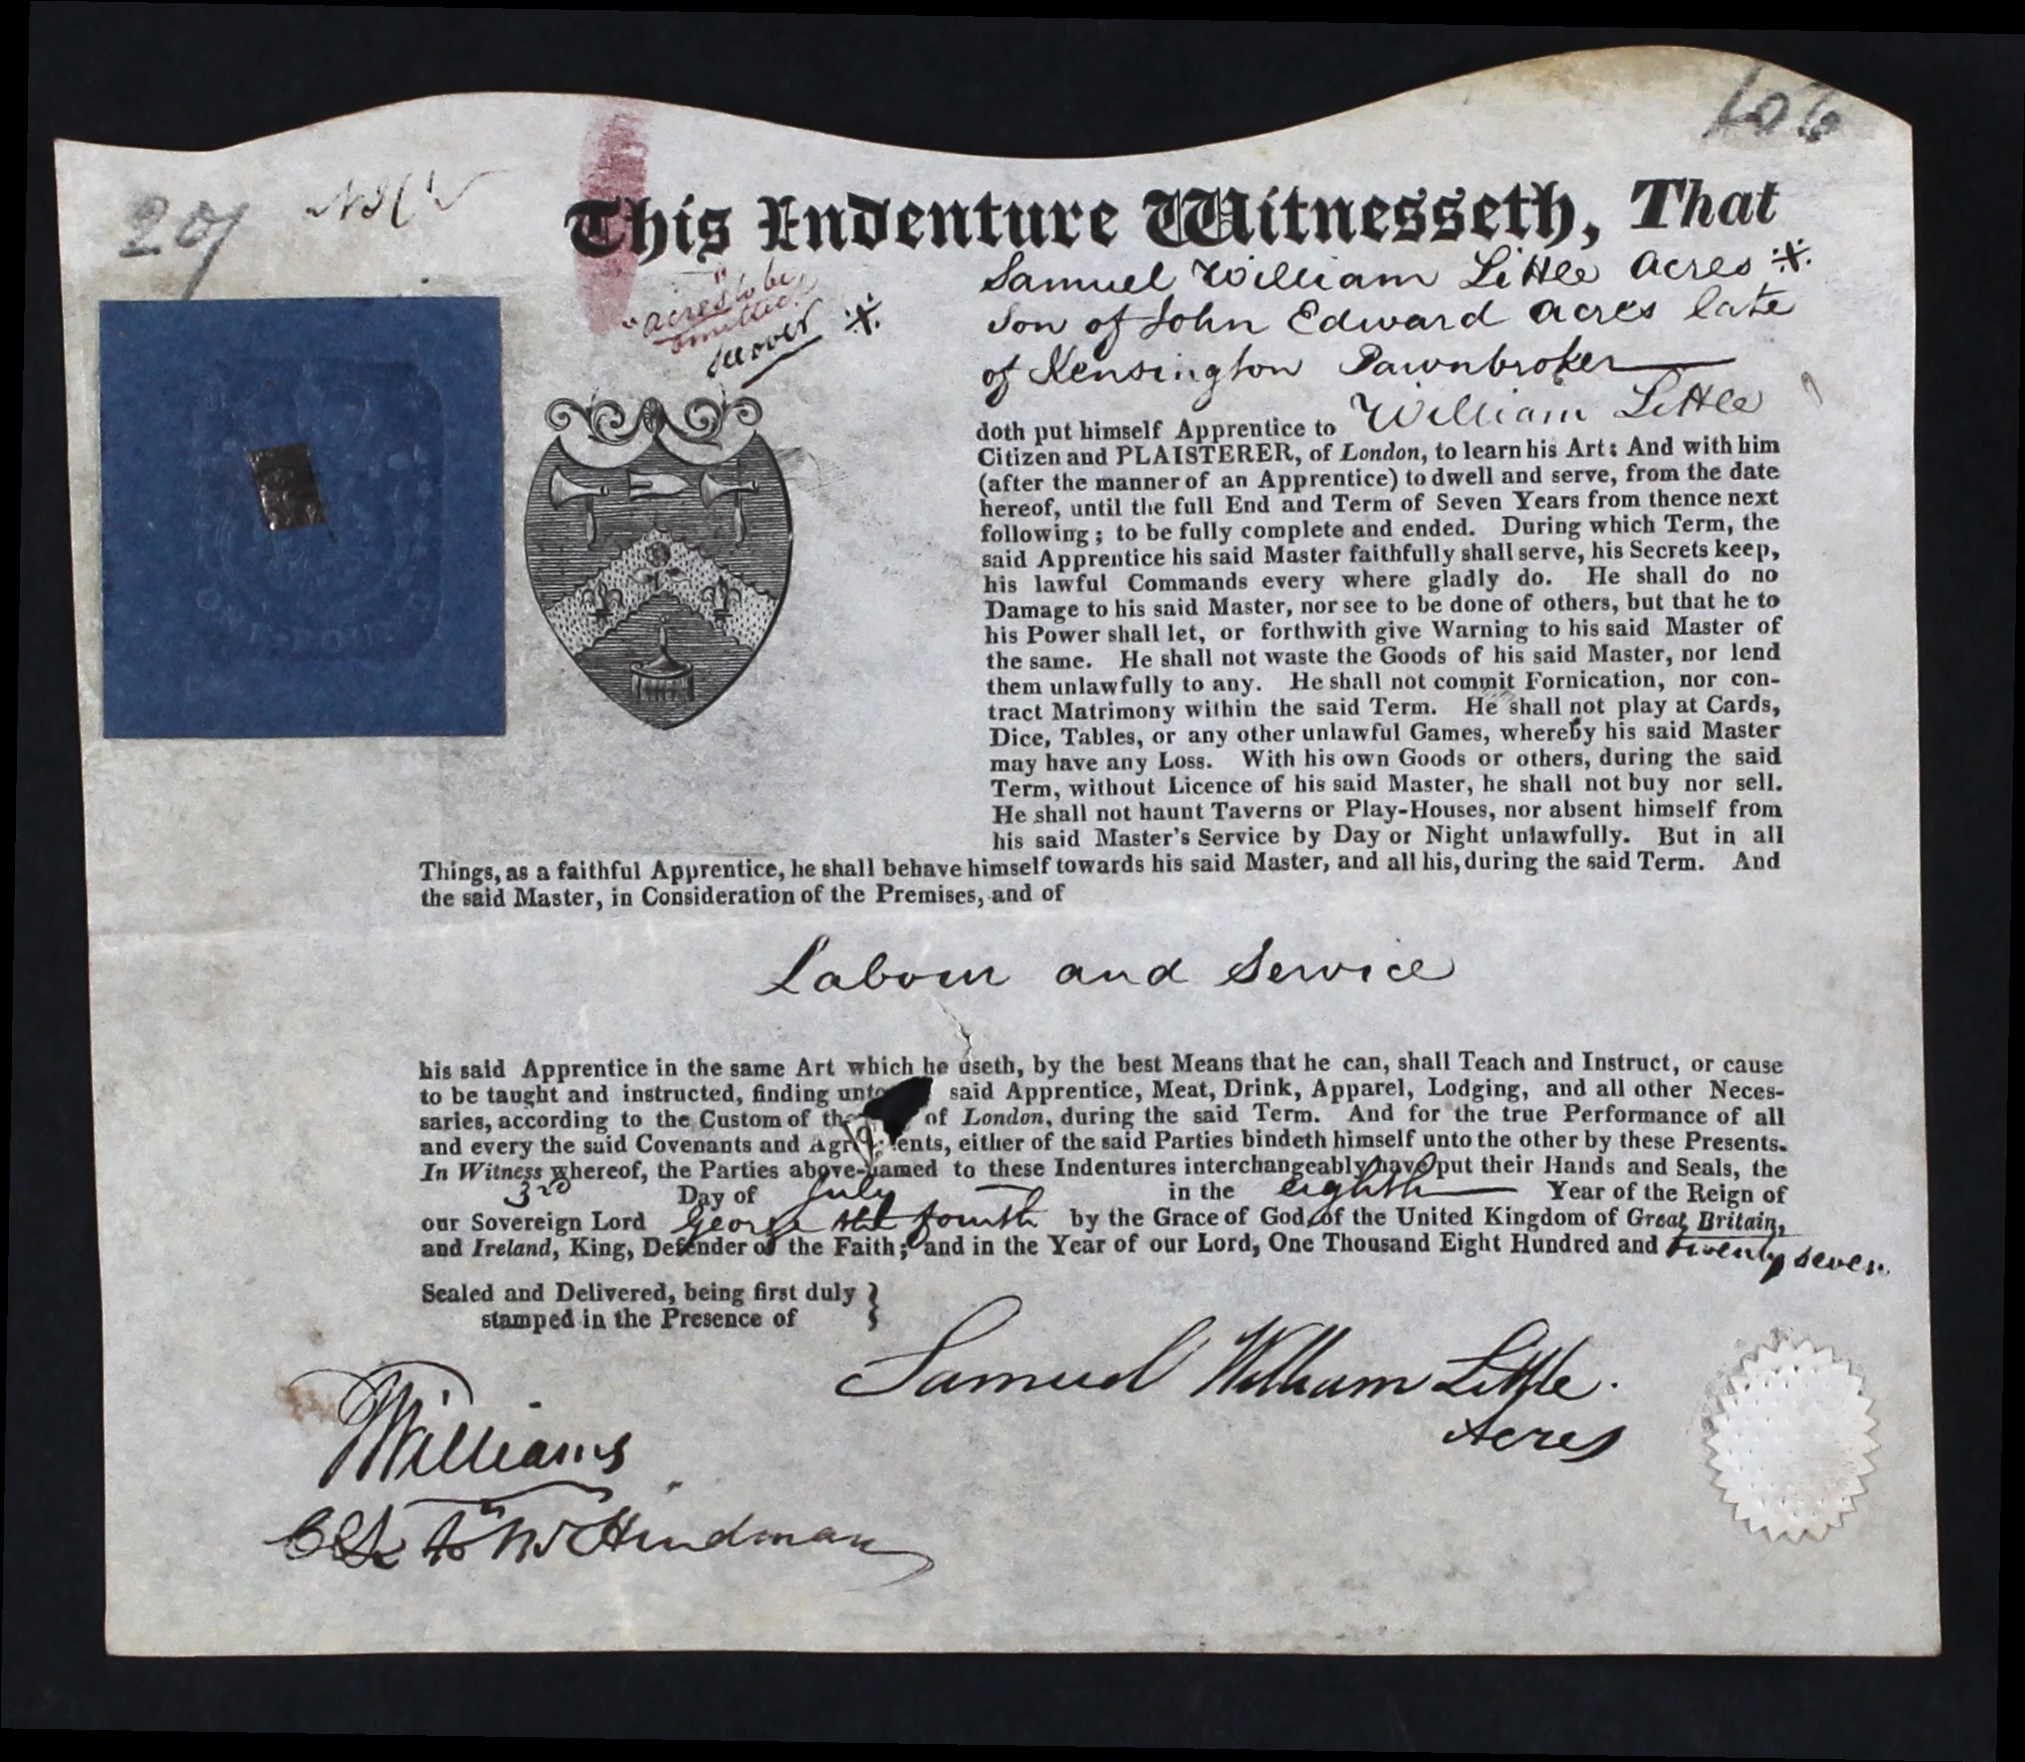 106
20/
This Indenture Witnesseth, That
Samuel William Little Acres ※
Son of John Edward Acres late
of Kensington Pawnbroker
"Acres" to be
omitted
see over ※
doth put himself Apprentice to William Little
Citizen and PLAISTERER, of London, to learn his Art: And with him
(after the manner of an Apprentice) to dwell and serve, from the date
hereof, until the full End and Term of Seven Years from thence next
following; to be fully complete and ended. During which Term, the
said Apprentice his said Master faithfully shall serve, his Secrets keep,
his lawful Commands every where gladly do. He shall do no
Damage to his said Master, nor see to be done of others, but that he to
his Power shall let, or forthwith give Warning to his said Master of
the same. He shall not waste the Goods of his said Master, nor lend
them unlawfully to any. He shall not commit Fornication, nor con-
tract Matrimony within the said Term. He shall not play at Cards,
Dice, Tables, or any other unlawful Games, whereby his said Master
may have any Loss. With his own Goods or others, during the said
Term, without Licence of his said Master, he shall not buy nor sell.
He shall not haunt Taverns or Play-Houses, nor absent himself from
his said Master's Service by Day or Night unlawfully. But in all
Things, as a faithful Apprentice, he shall behave himself towards his said Master, and all his, during the said Term. And
the said Master, in Consideration of the Premises, and of
Labour and Service
his said Apprentice in the same Art which he useth, by the best Means that he can, shall Teach and Instruct, or cause
to be taught and instructed, finding unto said Apprentice, Meat, Drink, Apparel, Lodging, and all other Neces-
saries, according to the Custom of the of London, during the said Term. And for the true Performance of all
and every the said Covenants and Agreements, either of the said Parties bindeth himself unto the other by these Presents.
In Witness whereof, the Parties above-named to these Indentures interchangeably have put their Hands and Seals, the
3rd Day of July in the eighth Year of the Reign of
our Sovereign Lord George the fourth by the Grace of God, of the United Kingdom of Great Britain,
and Ireland, King, Defender of the Faith; and in the Year of our Lord, One Thousand Eight Hundred and twenty seven
Sealed and Delivered, being first duly }
stamped in the Presence of
Samuel William Little
Acres
Williams
Clk to Mr Hindman